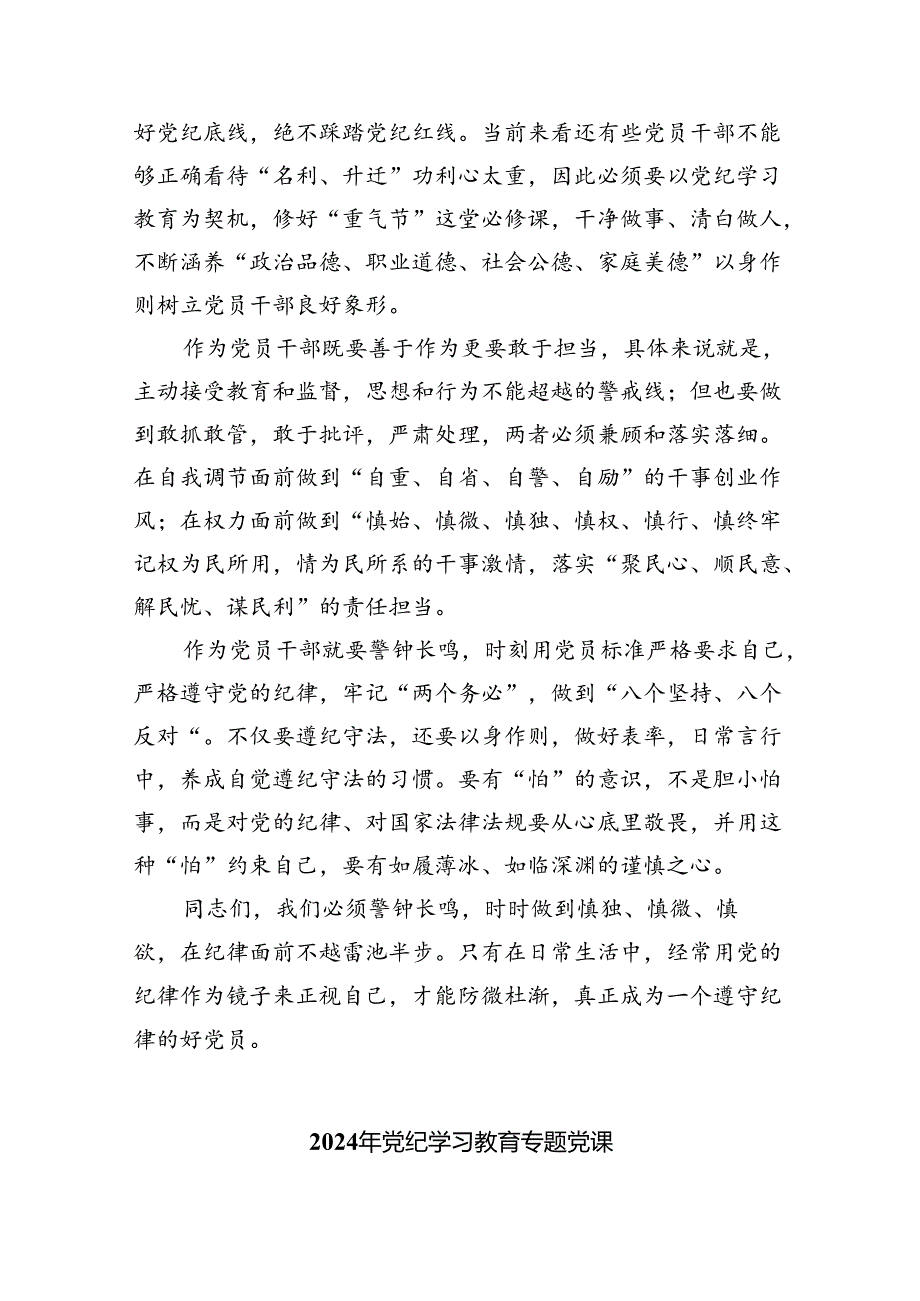 好党纪底线，绝不踩踏党纪红线。当前来看还有些党员干部不能
够正确看待“名利、升迁”功利心太重，因此必须要以党纪学习
教育为契机，修好“重气节”这堂必修课，干净做事、清白做人，
不断涵养“政治品德、职业道德、社会公德、家庭美德”以身作
则树立党员干部良好象形。
作为党员干部既要善于作为更要敢于担当，具体来说就是，
主动接受教育和监督，思想和行为不能超越的警戒线；但也要做
到敢抓敢管，敢于批评，严肃处理，两者必须兼顾和落实落细。
在自我调节面前做到“自重、自省、自警、自励”的干事创业作
风；在权力面前做到“慎始、慎微、慎独、慎权、慎行、慎终牢
记权为民所用，情为民所系的干事激情，落实“聚民心、顺民意、
解民忧、谋民利”的责任担当。
作为党员干部就要警钟长鸣，时刻用党员标准严格要求自己，
严格遵守党的纪律，牢记“两个务必”，做到“八个坚持、八个
反对“。不仅要遵纪守法，还要以身作则，做好表率，日常言行
中，养成自觉遵纪守法的习惯。要有“怕”的意识，不是胆小怕
事，而是对党的纪律、对国家法律法规要从心底里敬畏，并用这
种“怕”约束自己，要有如履薄冰、如临深渊的谨慎之心。
同志们，我们必须警钟长鸣，时时做到慎独、慎微、慎
欲，在纪律面前不越雷池半步。只有在日常生活中，经常用党的
纪律作为镜子来正视自己，才能防微杜渐，真正成为一个遵守纪
律的好党员。
2024年党纪学习教育专题党课